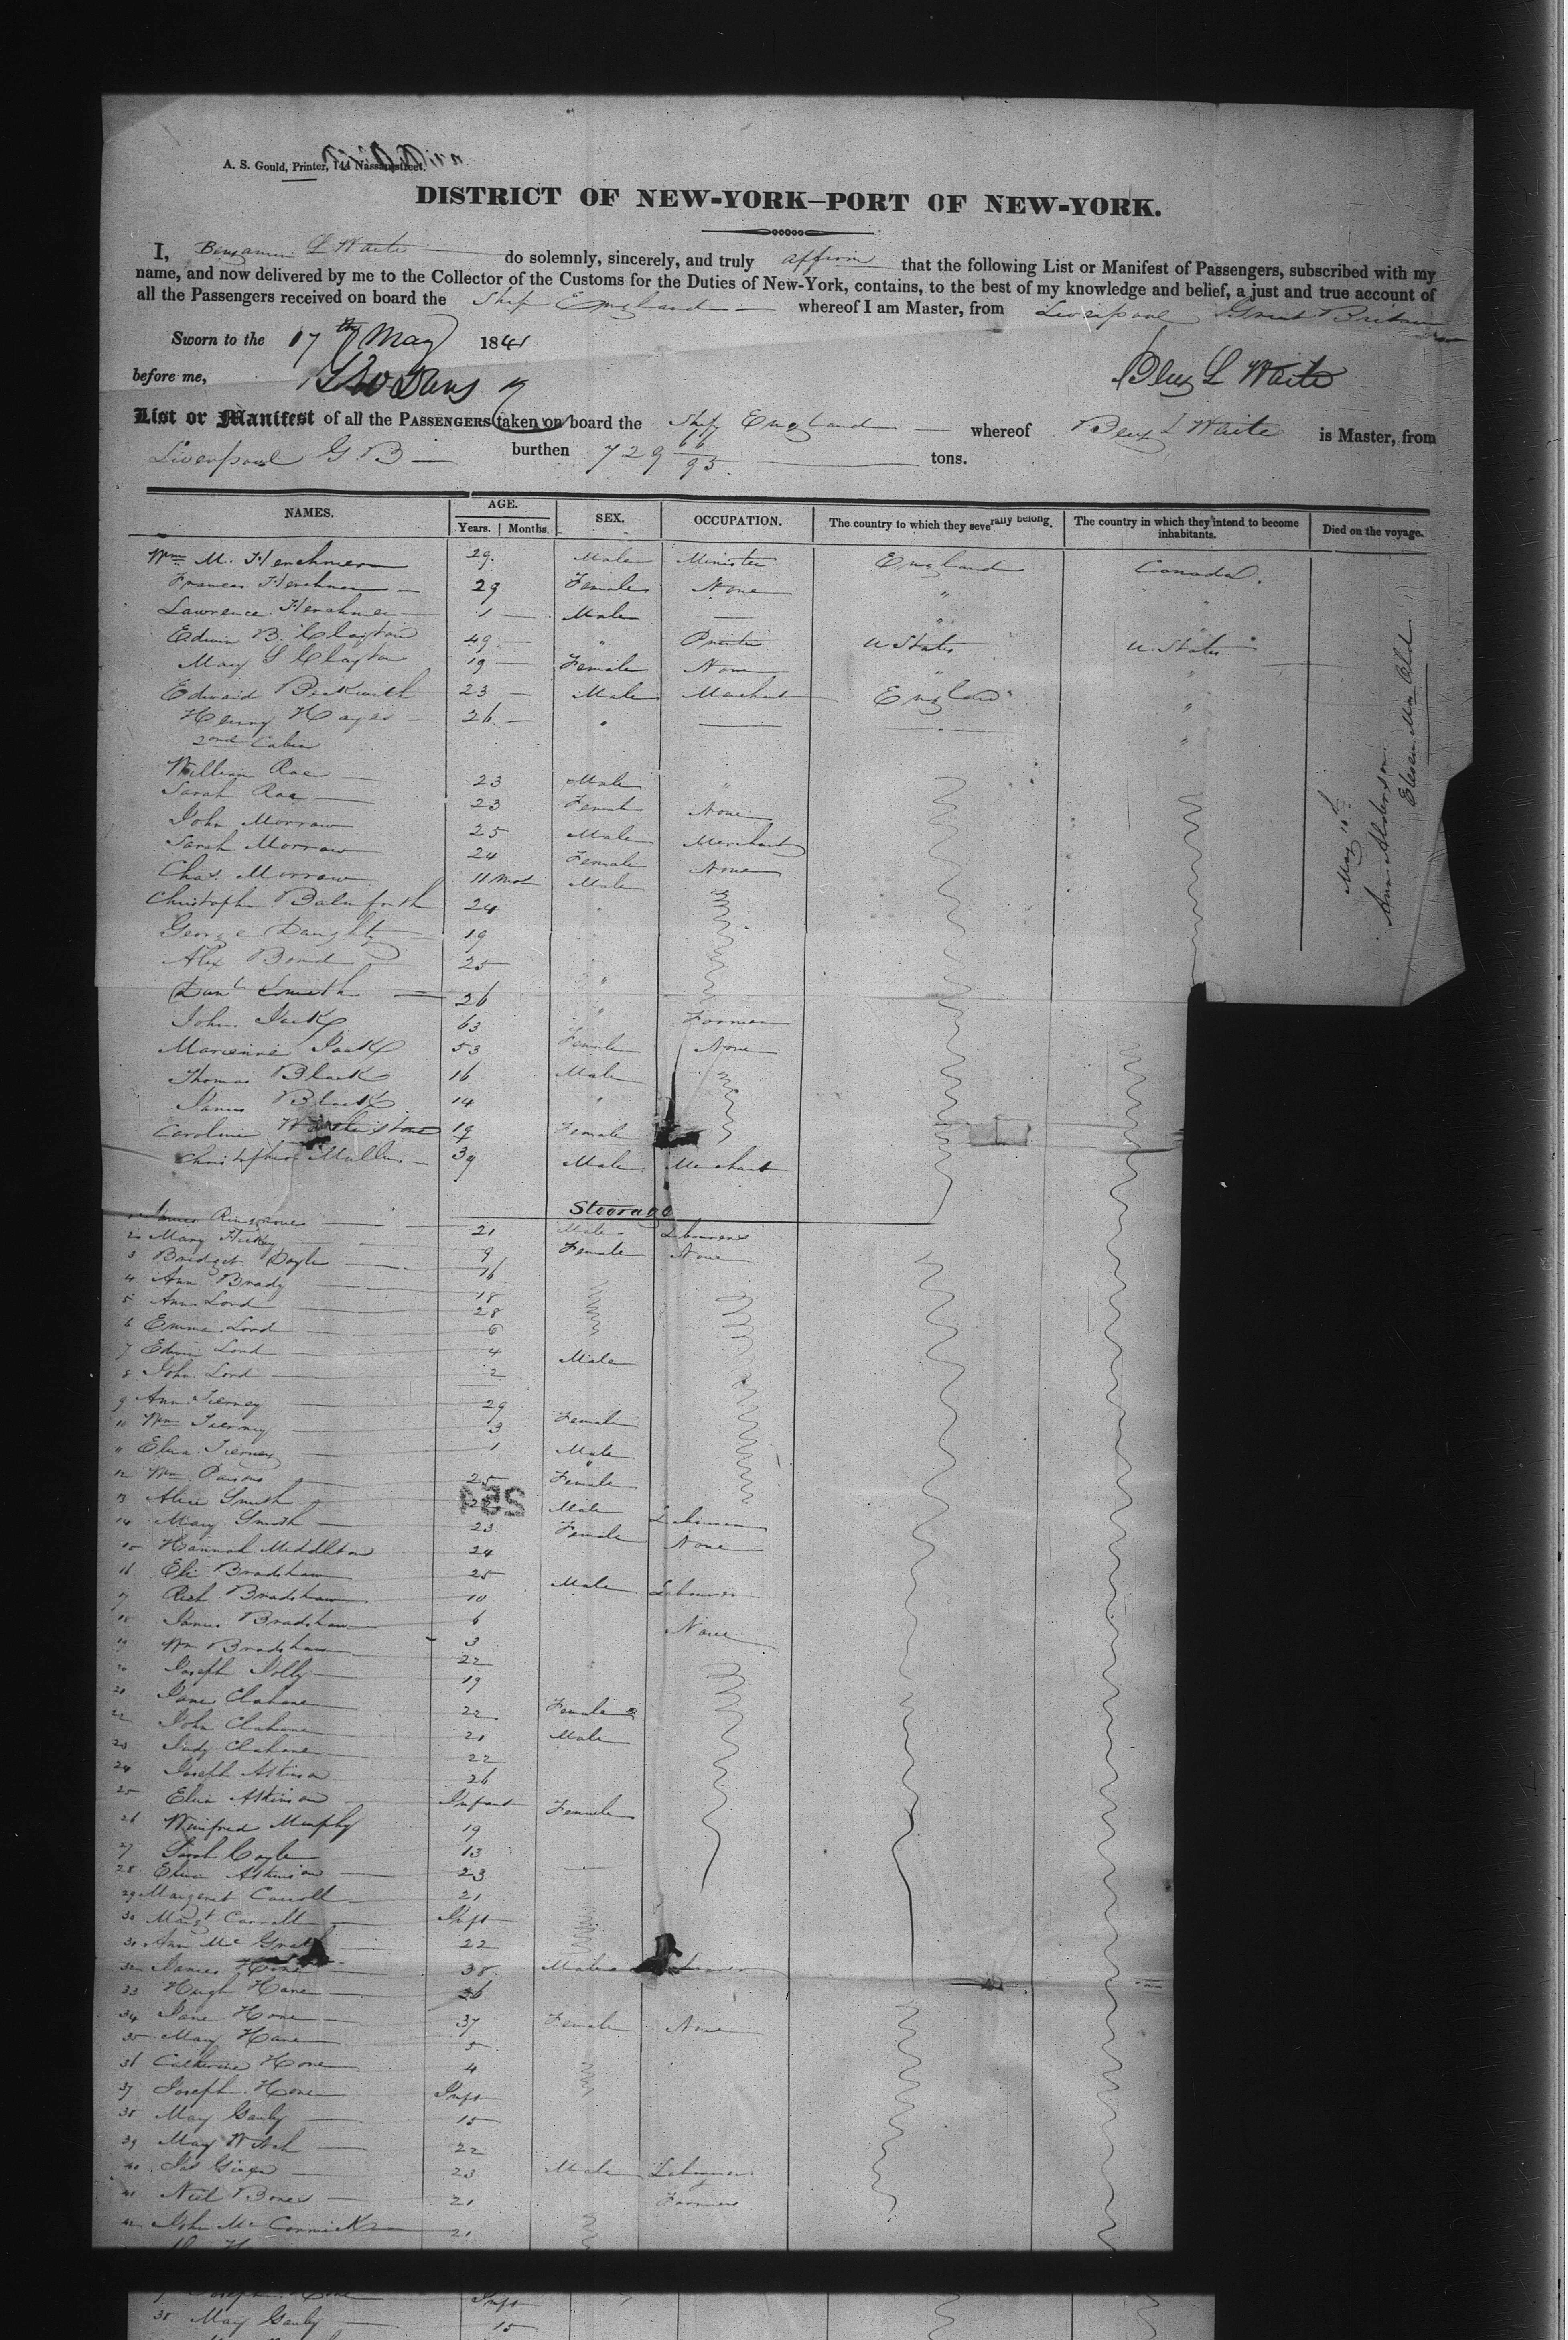 A. S. Gould, Printer, 144 Nassau-street.
DISTRICT OF NEW-YORK—PORT OF NEW-YORK.
I, Benjamin L Waite do solemnly, sincerely, and truly affirm that the following List or Manifest of Passengers, subscribed with my
name, and now delivered by me to the Collector of the Customs for the Duties of New-York, contains, to the best of my knowledge and belief, a just and true account of
all the Passengers received on board the Ship England whereof I am Master, from Liverpool Great Britain
Sworn to the 17th May 1841
before me, Benj L Waite
List or Manifest of all the PASSENGERS taken on board the Ship England whereof Benj L Waite is Master, from
Liverpool G. B burthen 729 66/95 tons.
NAMES. AGE. Years. Months. SEX. OCCUPATION. The country to which they severally belong. The country in which they intend to become inhabitants. Died on the voyage.
Wm M. Herchmer 29. Male Minister England Canada.
Frances Herchmer 29 Female None "
Lawrence Herchmer 1 Male "
Edwin B. Clayton 49 " Printer U States U. States
Mary S Clayton 19 Female None " "
Edward Beckwith 23 Male Merchant England "
Henry Hayes 26 " "
2nd Cabin
William Rae 23 Male "
Sarah Rae 23 Female None
John Morrow 25 Male Merchant
Sarah Morrow 24 Female None
Chas. Morrow 11 mos Male
Christopher Balmforth 24 "
George Daughty 19 "
Alex Bond 25
Danl Smith 26 "
John Jack 63 " Farmer
Marienne Jack 53 Female None
Thomas Black 16 Male "
James Black 14 "
Caroline 19 Female
Christopher Mullen 39 Male Merchant
May 10th
Ann Alderson
Eleven Mos Old
Steerage
1 James 21 Male Labourer
2 Mary Hickey 9 Female None
3 Bridget Doyle 16
4 Ann Brady 18
5 Ann Lord 28
6 Emma Lord 6
7 Edwin Lord 4 Male
8 John Lord 2
9 Ann Tierney 29 Female
10 Wm Tierney 3 Male
11 Eliza Tierney 1 "
12 Wm Parsons 25 Female
13 Alice Smith Male Labourer
254
14 Mary Smith 23 Female None
15 Hannah Middleton 24
16 Eli Bradshaw 25 Male Labourer
17 Rich Bradshaw 10
18 James Bradshaw 6 None
19 Wm Bradshaw 3
20 Joseph Jolly 22
21 Jane Clahane 19 Female
22 John Clahane 22 Male
23 Judy Clahane 21
24 Joseph Atkinson 22
25 Eliza Atkinson 26
26 Winifred Murphy Infant Female
27 Sarah Coyle 19
28 Eliza Atkinson 13
29 Margaret Carroll 23
30 Margt Carroll 21
31 Ann Mc Grath Inft
32 James Hone 22 Male
33 Hugh Hone 38
34 Jane Hone 37 Female None
35 Mary Hone 5
36 Catherine Hone 4
37 Joseph Hone Inft
38 Mary Ganly 15
39 Mary Walsh 22
40 Jas Given 23 Male Labourer
41 Neil Boner 21 Farmer
42 John Mc Cormick 21
Joseph Hone Inft
38 Mary Ganly 15